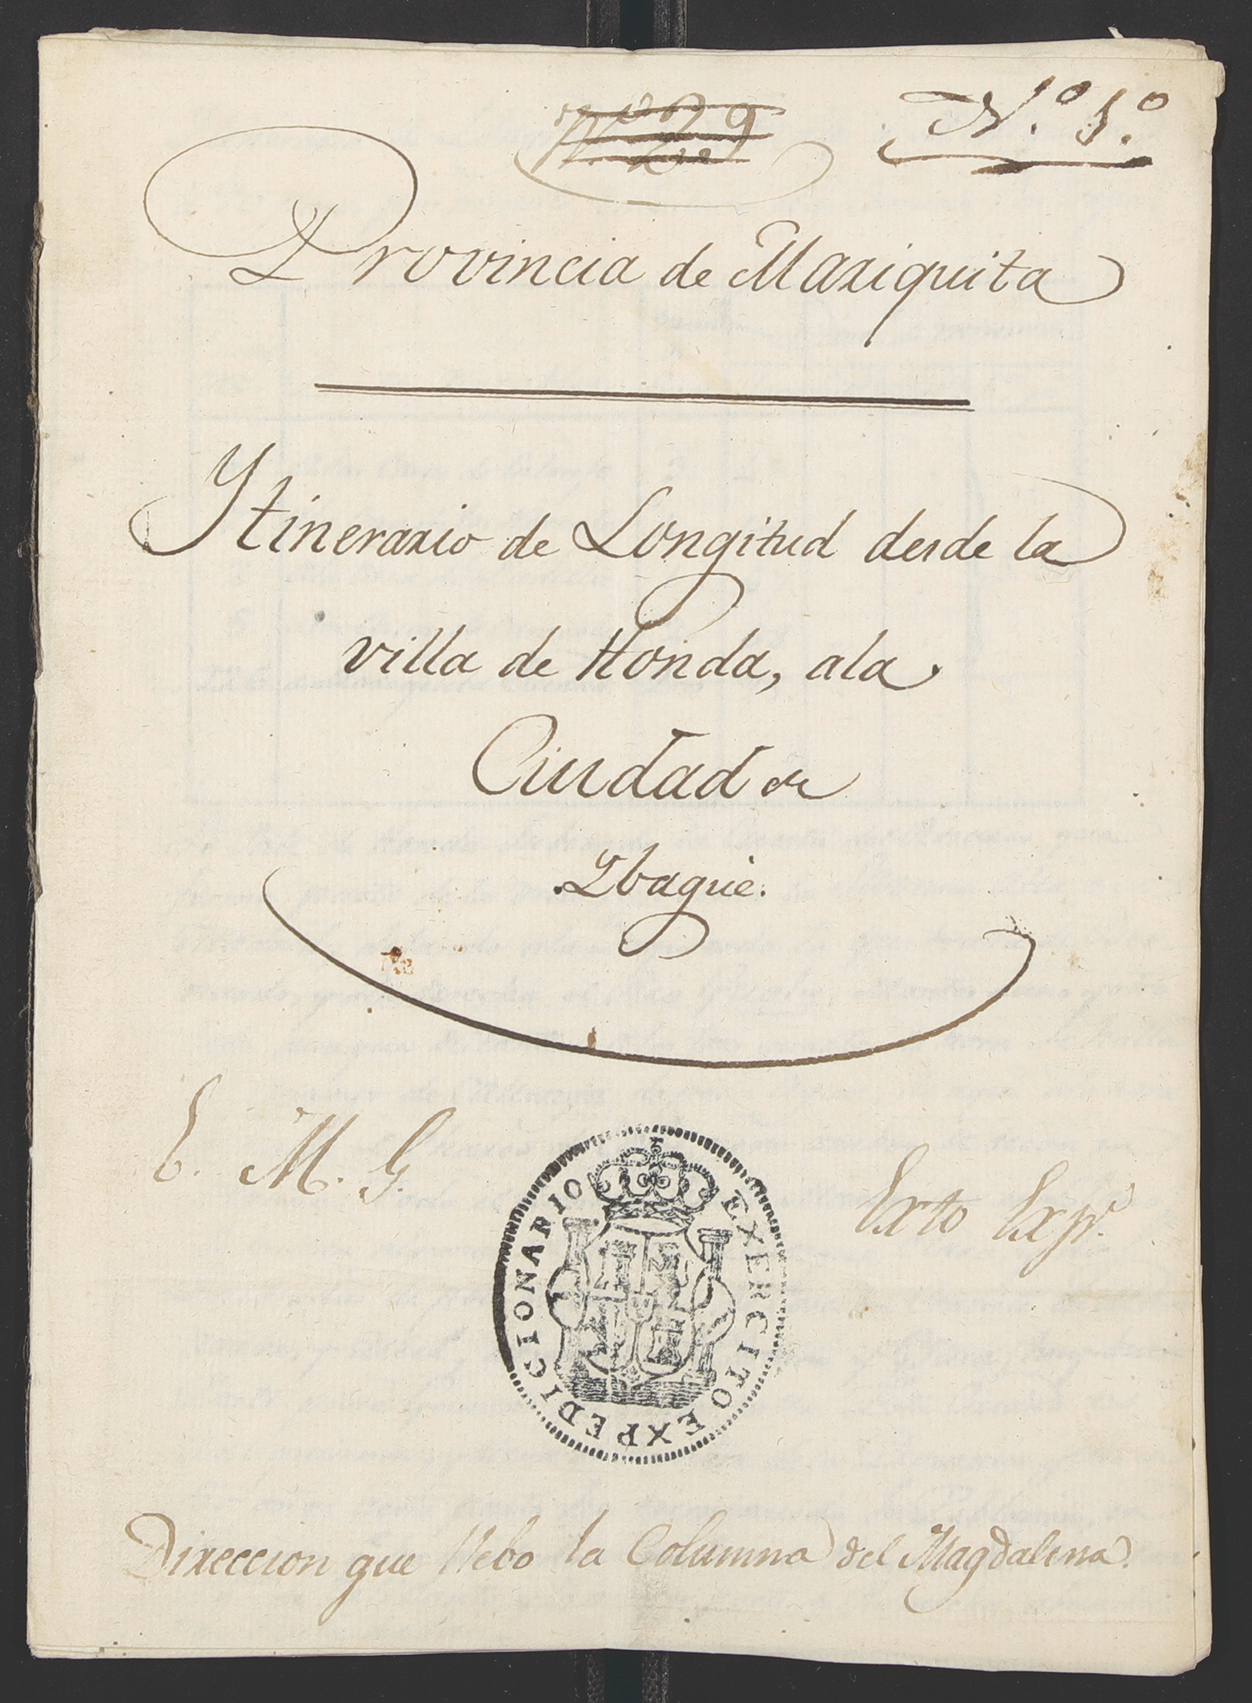 Nº 29
N.º 1.º
Provincia de Mariquita
Ytinerario de Longitud desde la
villa de Honda, ala
Ciudad de
Ybagué.
E. M. G.
Exto Expº.
EXERCITO EXPEDICIONARIO
Direccion que llebo la Columna del Magdalena.